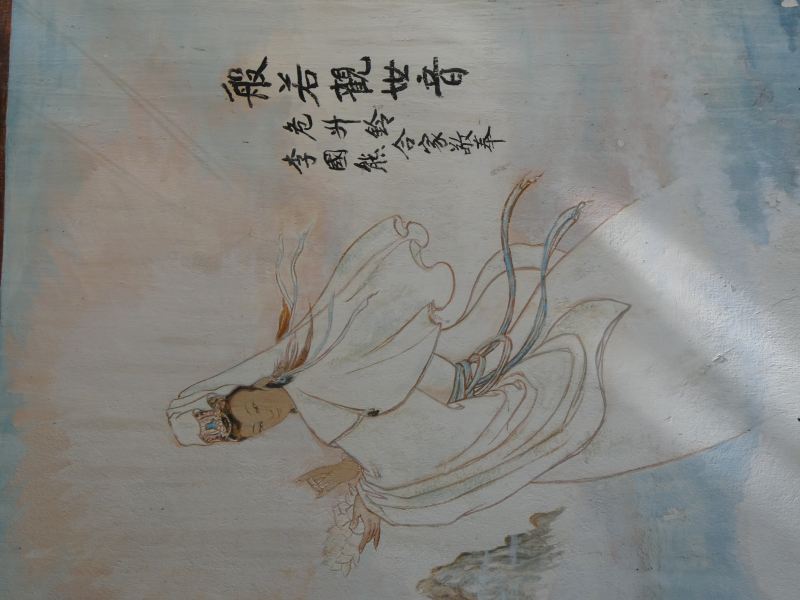 般若觀世音
危升鈴
李國熊
合家敬奉